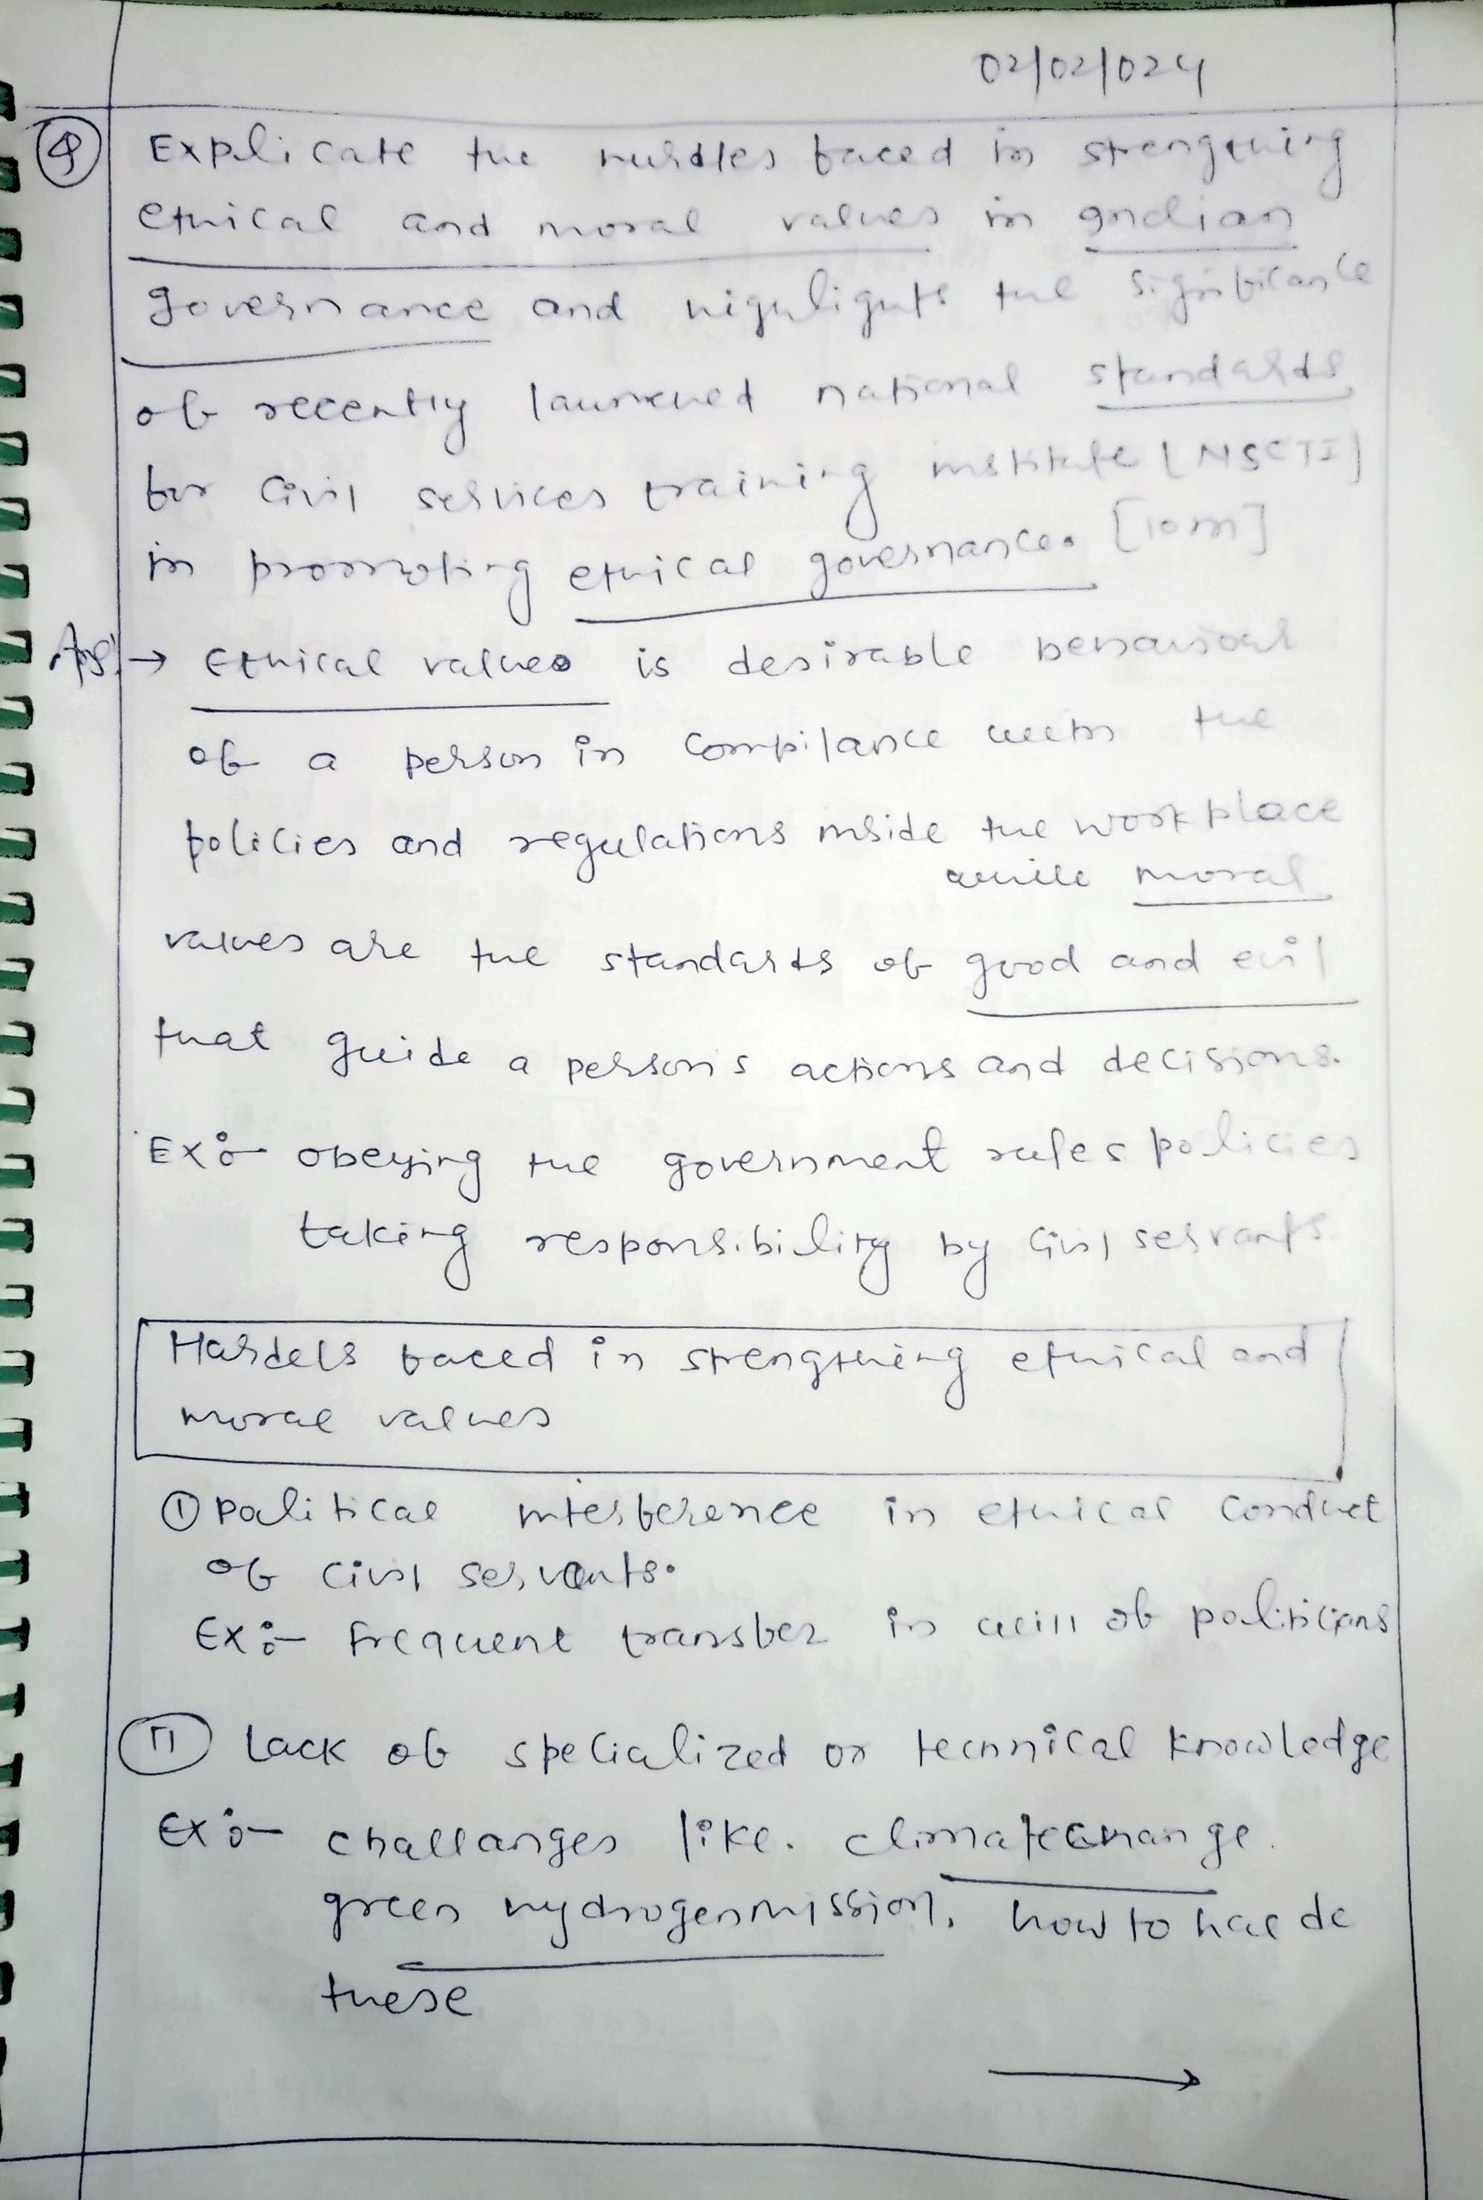 02/02/024
Q Explicate the hurdles faced in strengthing
ethical and moral values in Indian
governance and highlights the significance
of recently launched national standards
for civil services training institute [NSCTI]
in promoting ethical governance. [10m]
Ans:→ Ethical values is desirable behaviour
of a person in compilance with the
policies and regulations inside the workplace
while moral
values are the standards of good and evil
that guide a person's actions and decisions.
Ex:- obeying the government rules policies
taking responsibility by civil servants
Hardels faced in strengthing ethical and
moral values
(I) political interference in ethical conduct
of civil servants.
Ex:- frequent transfer in will of politicians
(II) Lack of specialized or technical knowledge
Ex:- challanges like. climate change.
green hydrogen mission. how to
these
→